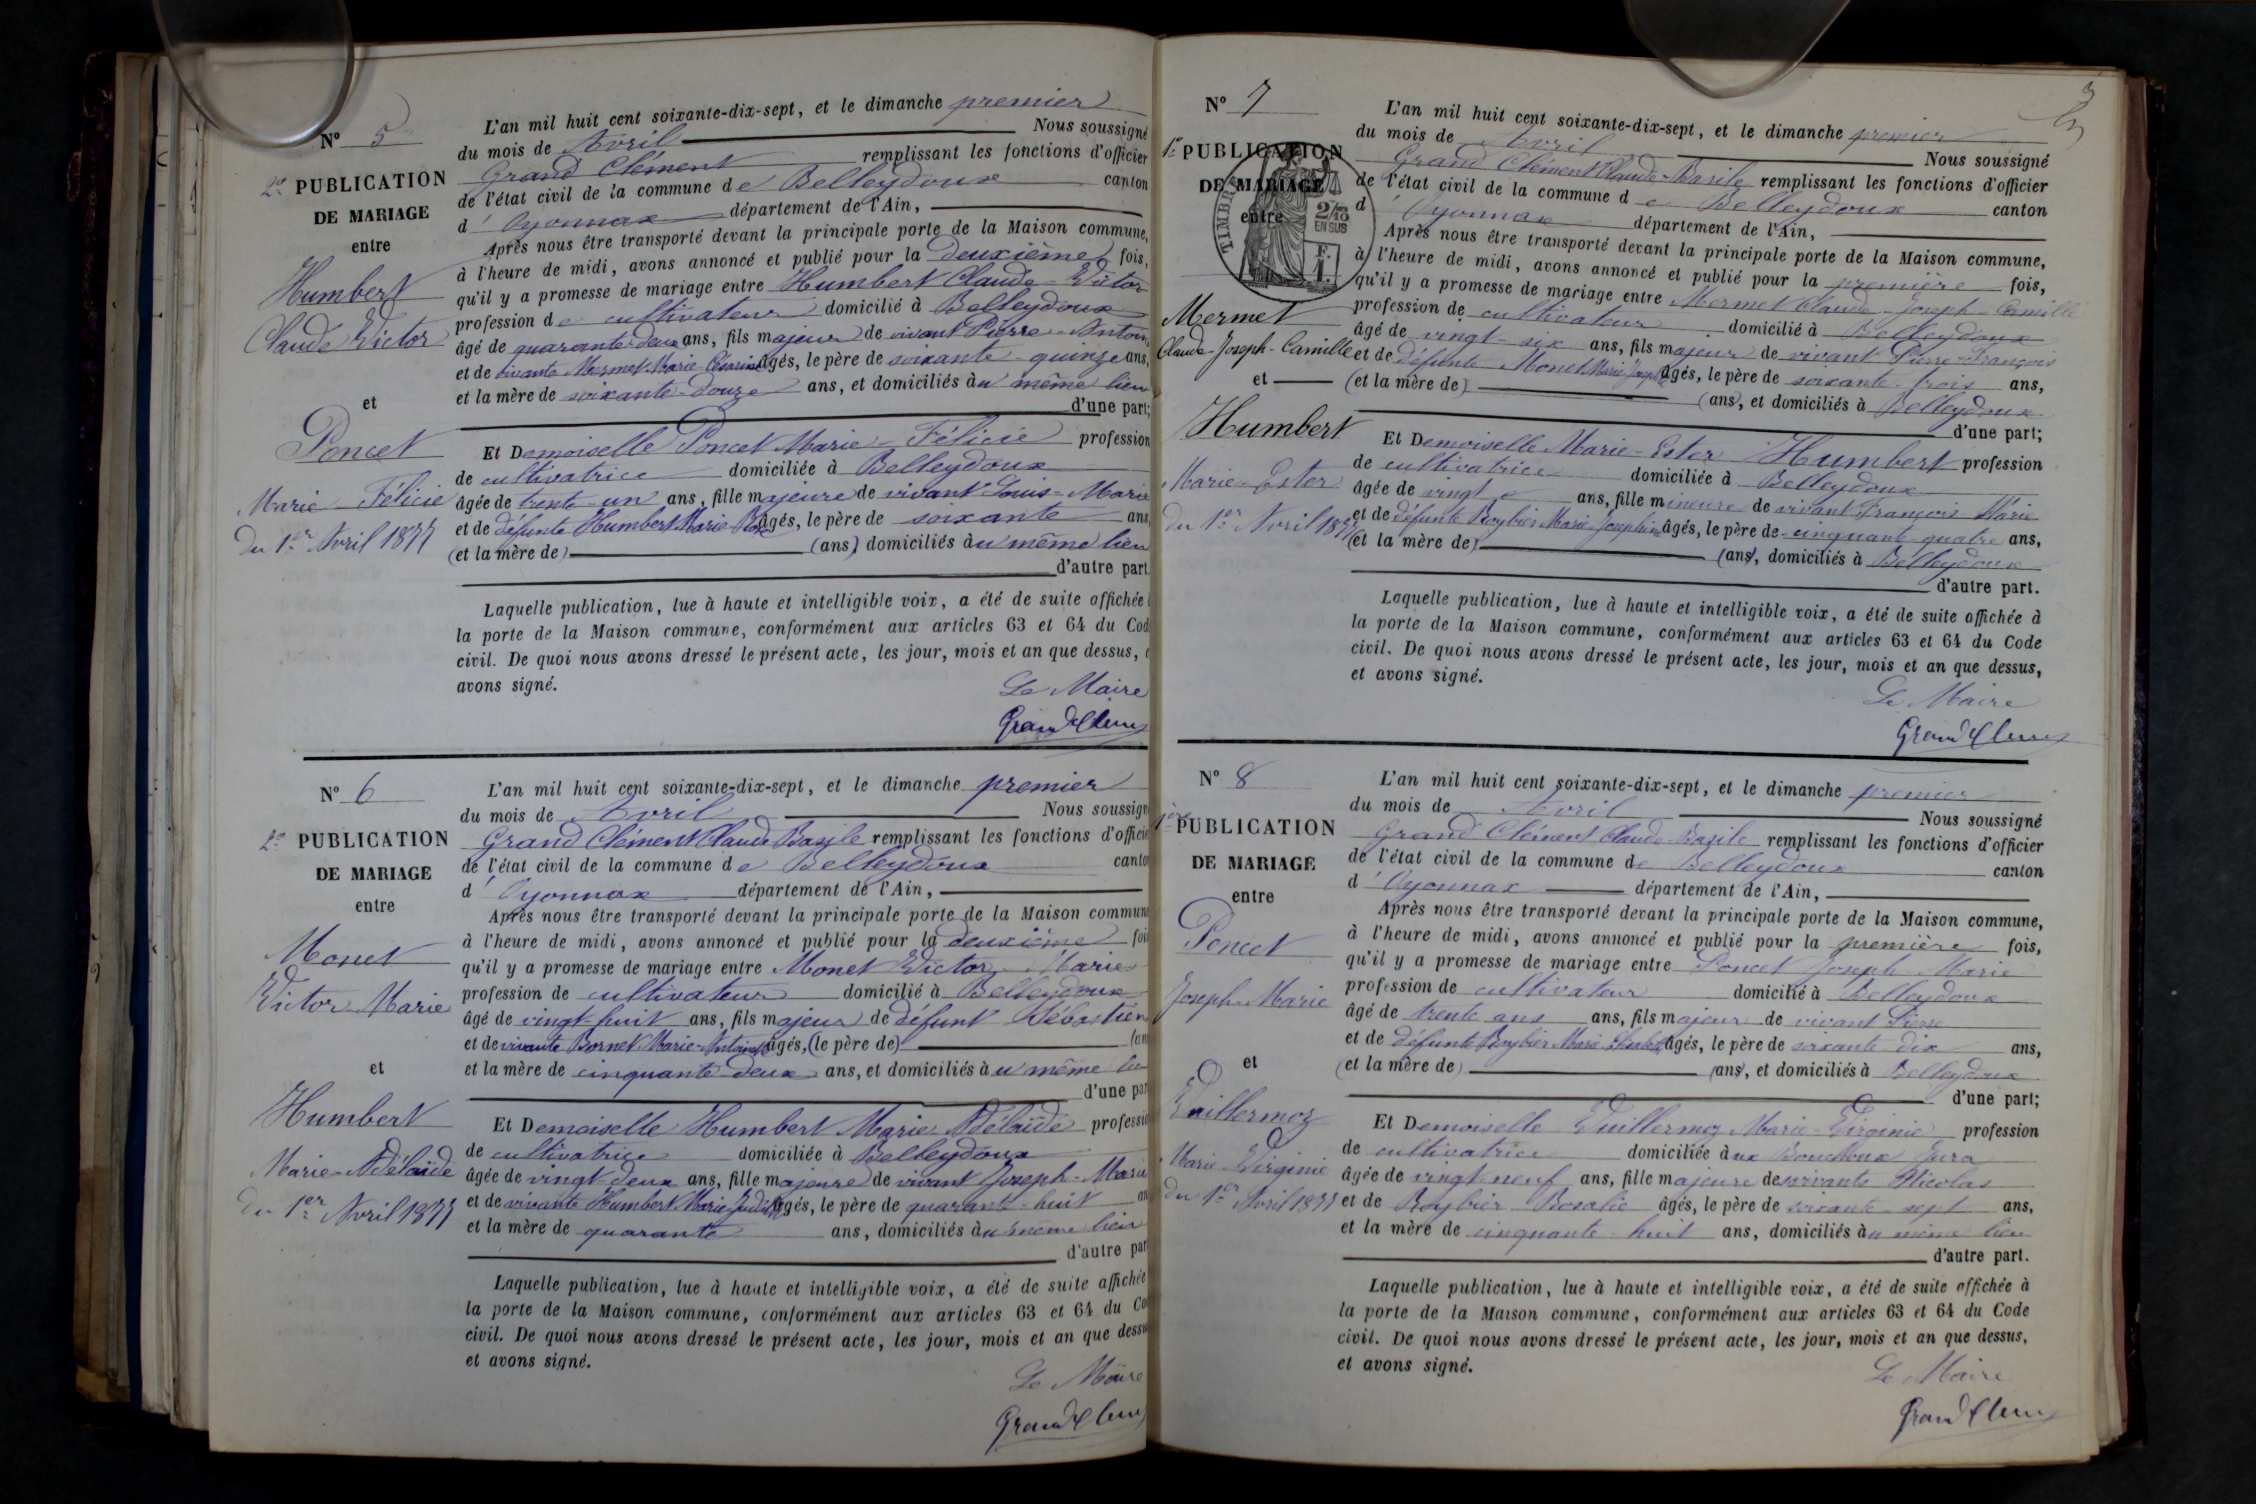 N° 5
2e PUBLICATION
DE MARIAGE
entre
Humbert
Claude Victor
et
Poncet
Marie Félicie
Du 1er Avril 1877
L'an mil huit cent soixante-dix-sept, et le dimanche premier
du mois de Avril Nous soussigné
Grand Clément remplissant les fonctions d'officier
de l'état civil de la commune de Belleydoux canton
d'Oyonnax département de l'Ain,
Après nous être transporté devant la principale porte de la Maison commune,
à l'heure de midi, avons annoncé et publié pour la deuxième fois,
qu'il y a promesse de mariage entre Humbert Claude-Victor
profession de cultivateur domicilié à Belleydoux
âgé de quarante-deux ans, fils majeur de vivant Pierre-Antoine
et de vivante Mermet Marie Césarine âgés, le père de soixante-quinze ans,
et la mère de soixante-douze ans, et domiciliés au même lieu
d'une part;
Et Demoiselle Poncet Marie-Félicie profession
de cultivatrice domiciliée à Belleydoux
âgée de trente-un ans, fille majeure de vivant Louis-Marie
et de défunte Humbert Marie-Rose âgés, le père de soixante ans
(et la mère de) (ans) domiciliés au même lieu
d'autre part.
Laquelle publication, lue à haute et intelligible voix, a été de suite affichée
la porte de la Maison commune, conformément aux articles 63 et 64 du Cod
civil. De quoi nous avons dressé le présent acte, les jour, mois et an que dessus, e
avons signé.
Le Maire
Grand Clem
N° 6
2e PUBLICATION
DE MARIAGE
entre
Monet
Victor-Marie
et
Humbert
Marie-Adélaïde
du 1er Avril 1877
L'an mil huit cent soixante-dix-sept, et le dimanche premier
du mois de Avril Nous soussign
Grand Clément Claude Basile remplissant les fonctions d'officie
de l'état civil de la commune de Belleydoux canto
d'Oyonnax département de l'Ain,
Après nous être transporté devant la principale porte de la Maison commune
à l'heure de midi, avons annoncé et publié pour la deuxième foi
qu'il y a promesse de mariage entre Monet Victor-Marie
profession de cultivateur domicilié à Belleydoux
âgé de vingt-huit ans, fils majeur de défunt Sébastien
et de vivante Bornet Marie-Antoinette âgés, (le père de) (an
et la mère de cinquante-deux ans, et domiciliés au même lieu
d'une par
Et Demoiselle Humbert Marie-Adélaïde professio
de cultivatrice domiciliée à Belleydoux
âgée de vingt-deux ans, fille majeure de vivant Joseph-Marie
et de vivante Humbert Marie-Judith âgés, le père de quarante-huit an
et la mère de quarante ans, domiciliés au même lieu
d'autre par
Laquelle publication, lue à haute et intelligible voix, a été de suite affichée
la porte de la Maison commune, conformément aux articles 63 et 64 du Co
civil. De quoi nous avons dressé le présent acte, les jour, mois et an que dessu
et avons signé.
Le Maire
Grand Clem
3
N° 7
1re PUBLICATION
DE MARIAGE
entre
TIMBRE
2/10
EN SUS
F.
1.
Mermet
Claude-Joseph-Camille
et
Humbert
Marie-Ester
du 1er Avril 1877
L'an mil huit cent soixante-dix-sept, et le dimanche premier
du mois de Avril Nous soussigné
Grand Clément Claude-Basile remplissant les fonctions d'officier
de l'état civil de la commune de Belleydoux canton
d'Oyonnax département de l'Ain,
Après nous être transporté devant la principale porte de la Maison commune,
à l'heure de midi, avons annoncé et publié pour la première fois,
qu'il y a promesse de mariage entre Mermet Claude-Joseph-Camille
profession de cultivateur domicilié à Belleydoux
âgé de vingt-six ans, fils majeur de vivant Pierre-François
et de défunte Monet Marie Josephte âgés, le père de soixante-trois ans,
(et la mère de) (ans), et domiciliés à Belleydoux
d'une part;
Et Demoiselle Marie-Ester Humbert profession
de cultivatrice domiciliée à Belleydoux
âgée de vingt ans, fille mineure de vivant François-Marie
et de défunte Roybier Marie-Josephine âgés, le père de cinquante-quatre ans,
(et la mère de) (ans), domiciliés à Belleydoux
d'autre part.
Laquelle publication, lue à haute et intelligible voix, a été de suite affichée à
la porte de la Maison commune, conformément aux articles 63 et 64 du Code
civil. De quoi nous avons dressé le présent acte, les jour, mois et an que dessus,
et avons signé.
Le Maire
Grand Clem
N° 8
1ère PUBLICATION
DE MARIAGE
entre
Poncet
Joseph-Marie
et
Vuillermoz
Marie-Virginie
du 1er Avril 1877
L'an mil huit cent soixante-dix-sept, et le dimanche premier
du mois de Avril Nous soussigné
Grand Clément Claude-Basile remplissant les fonctions d'officier
de l'état civil de la commune de Belleydoux canton
d'Oyonnax département de l'Ain,
Après nous être transporté devant la principale porte de la Maison commune,
à l'heure de midi, avons annoncé et publié pour la première fois,
qu'il y a promesse de mariage entre Poncet Joseph-Marie
profession de cultivateur domicilié à Belleydoux
âgé de trente ans ans, fils majeur de vivant Pierre
et de défunte Roybier Marie âgés, le père de soixante-dix ans,
(et la mère de) (ans), et domiciliés à Belleydoux
d'une part;
Et Demoiselle Vuillermoz Marie-Virginie profession
de cultivatrice domiciliée aux Bouchoux Jura
âgée de vingt-neuf ans, fille majeure de survivants Nicolas
et de Roybier Rosalie âgés, le père de soixante-sept ans,
et la mère de cinquante-huit ans, domiciliés au même lieu
d'autre part.
Laquelle publication, lue à haute et intelligible voix, a été de suite affichée à
la porte de la Maison commune, conformément aux articles 63 et 64 du Code
civil. De quoi nous avons dressé le présent acte, les jour, mois et an que dessus,
et avons signé.
Le Maire
Grand Clem